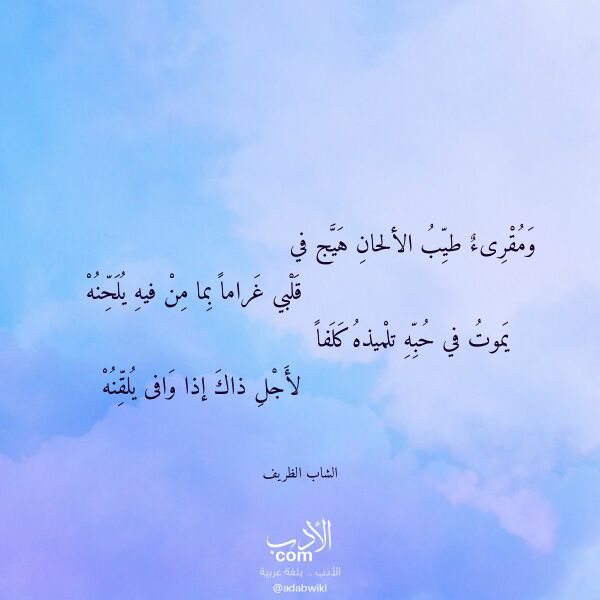 وَمُقْرِىءٌ طيِّبُ الألحانِ هَيَّج في
قَلْبي غَراماً بِما مِنْ فيهِ يُلَحِّنُهْ
يَموتُ في حُبِّهِ تلْميذهُ كَلَفاً
لأَجْلِ ذاكَ إذا وَافى يُلقِّنُهْ
الشاب الظريف
الأدب
com
الأدب .. بلغة عربية
@adabwiki